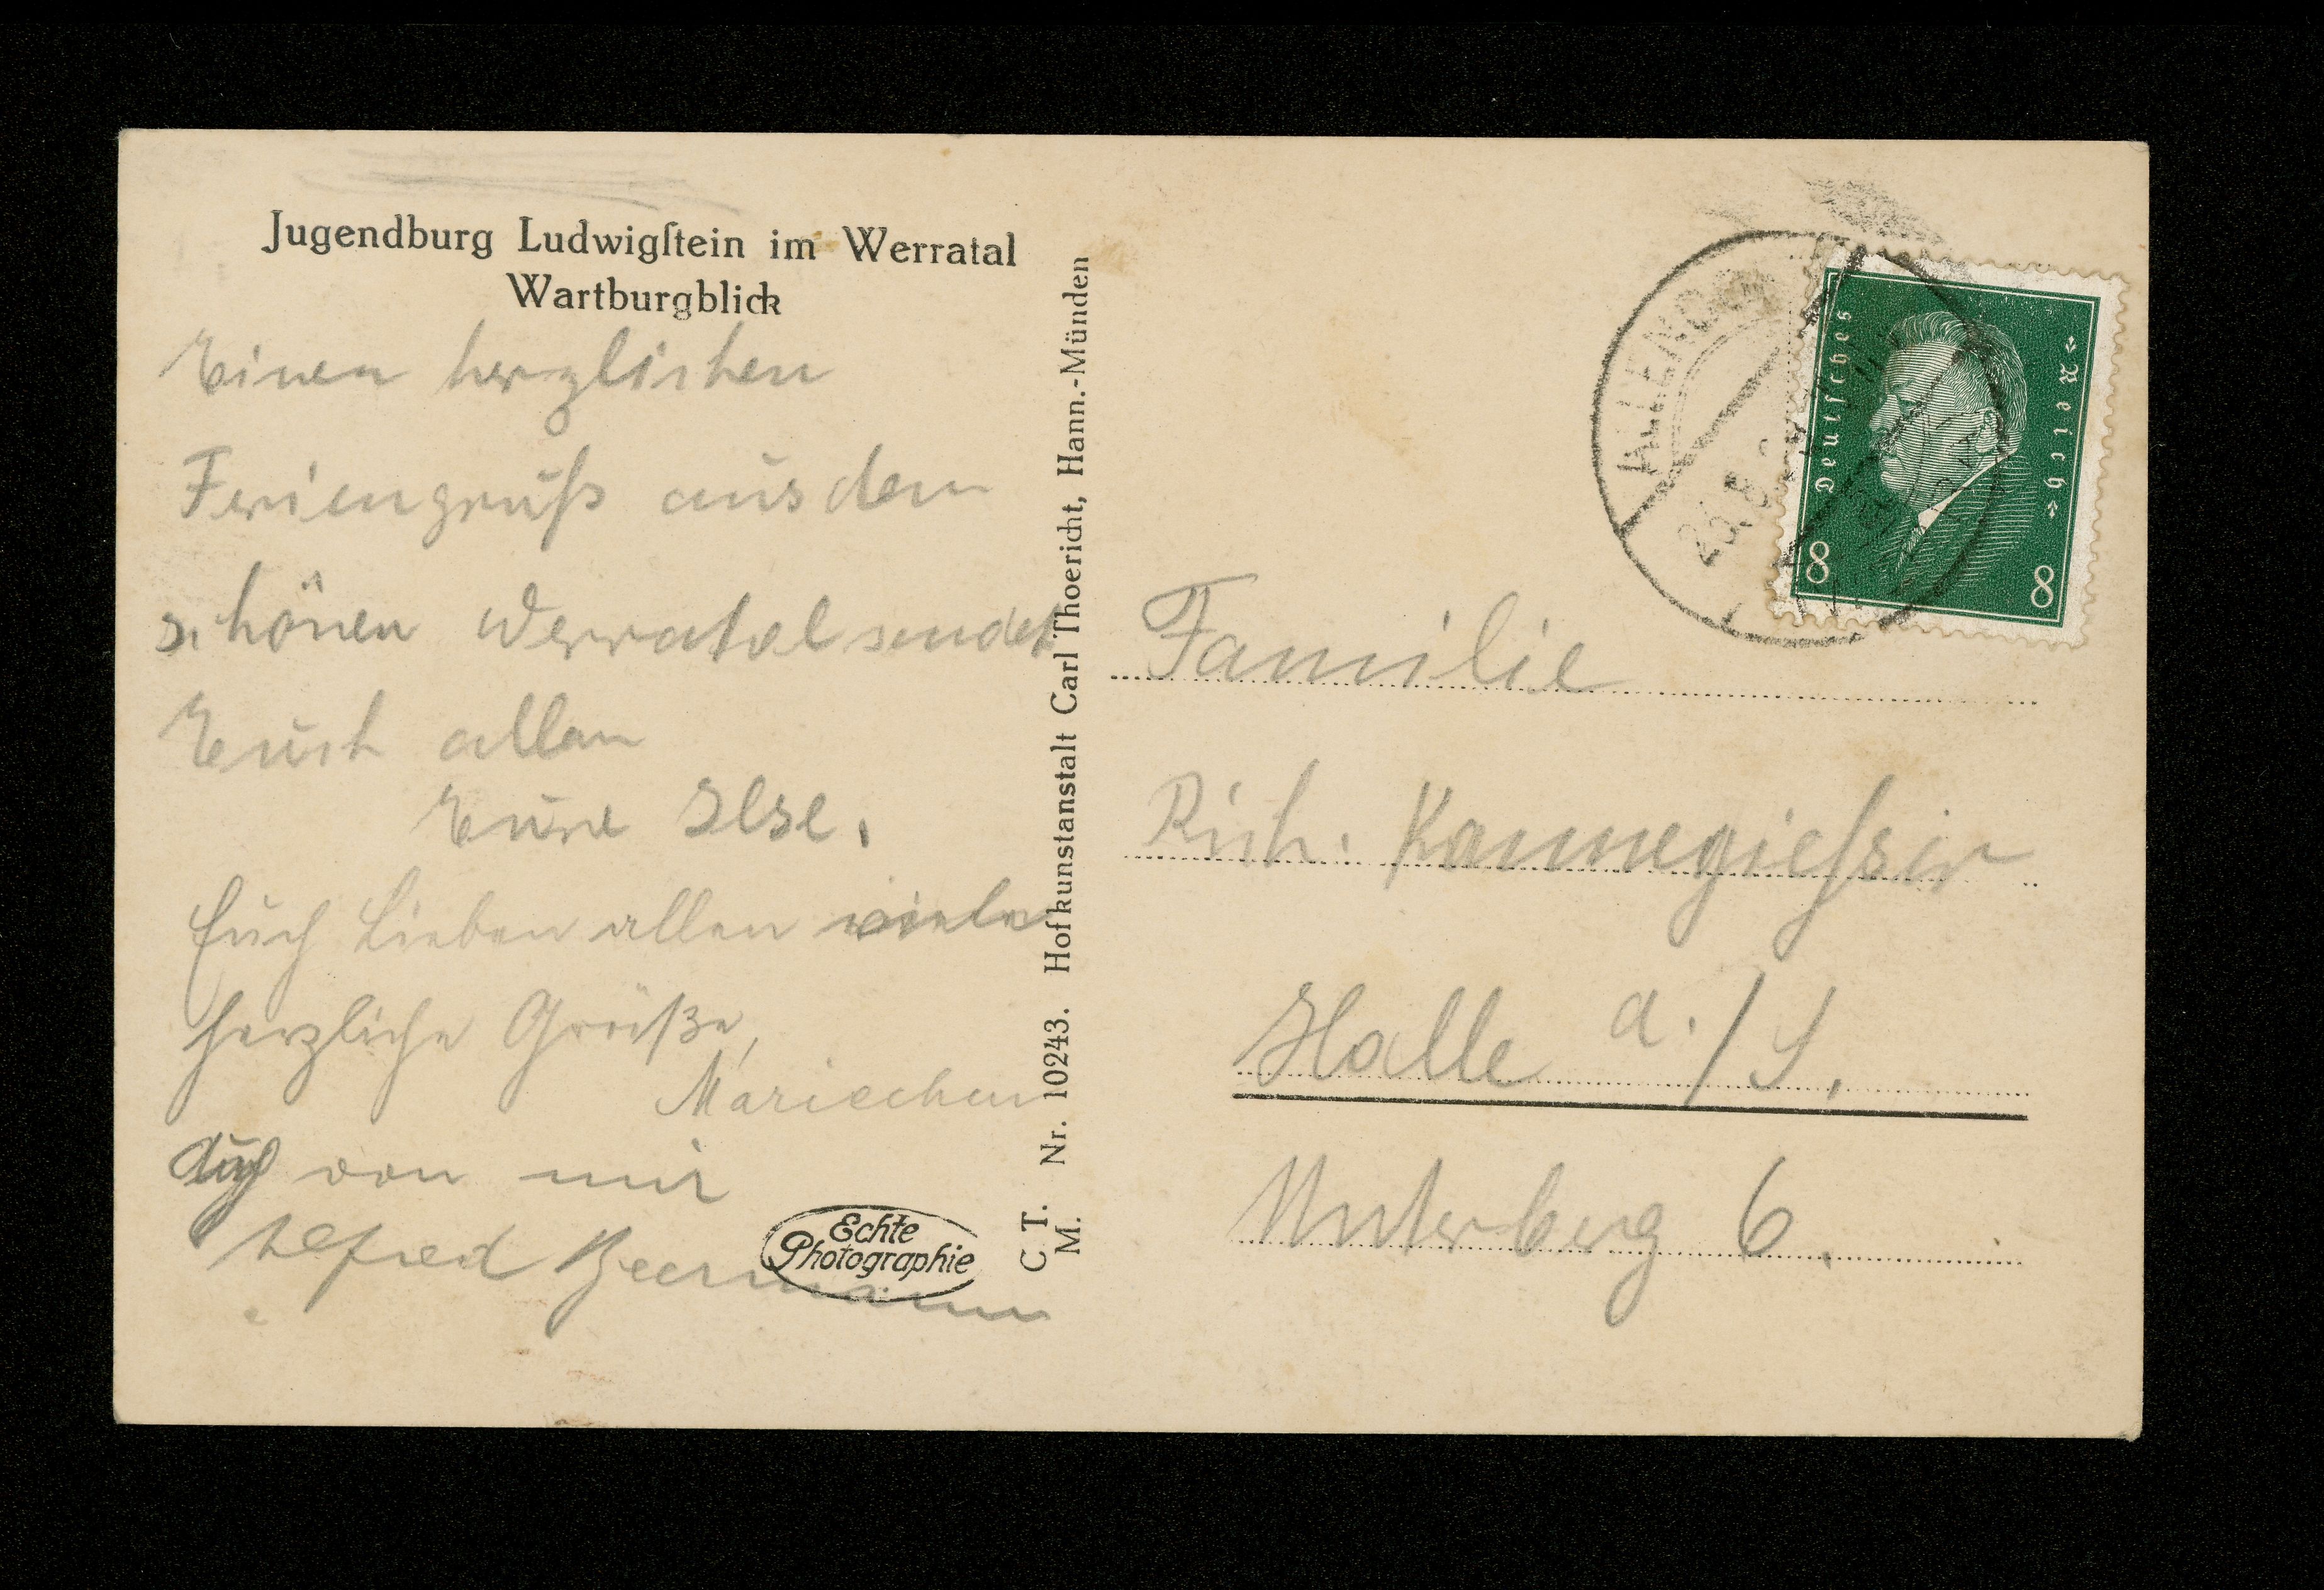 Jugendburg Ludwigſtein im Werratal
Wartburgblick
Einen herzlichen
Feriengruß aus dem
schönen Werratal sendet
Euch allen
Eure Ilse.
Euch Lieben allen viele
herzliche Grüße,
Mariechen
Auch von mir
Alfred Beermann
Echte
Photographie
C. T.
M.
Nr. 10243. Hofkunstanstalt Carl Thoericht, Hann.-Münden
Deutsches
Reich
8
8
Familie
Rich. Kannegiesser
Halle a./S.
Unterberg 6.